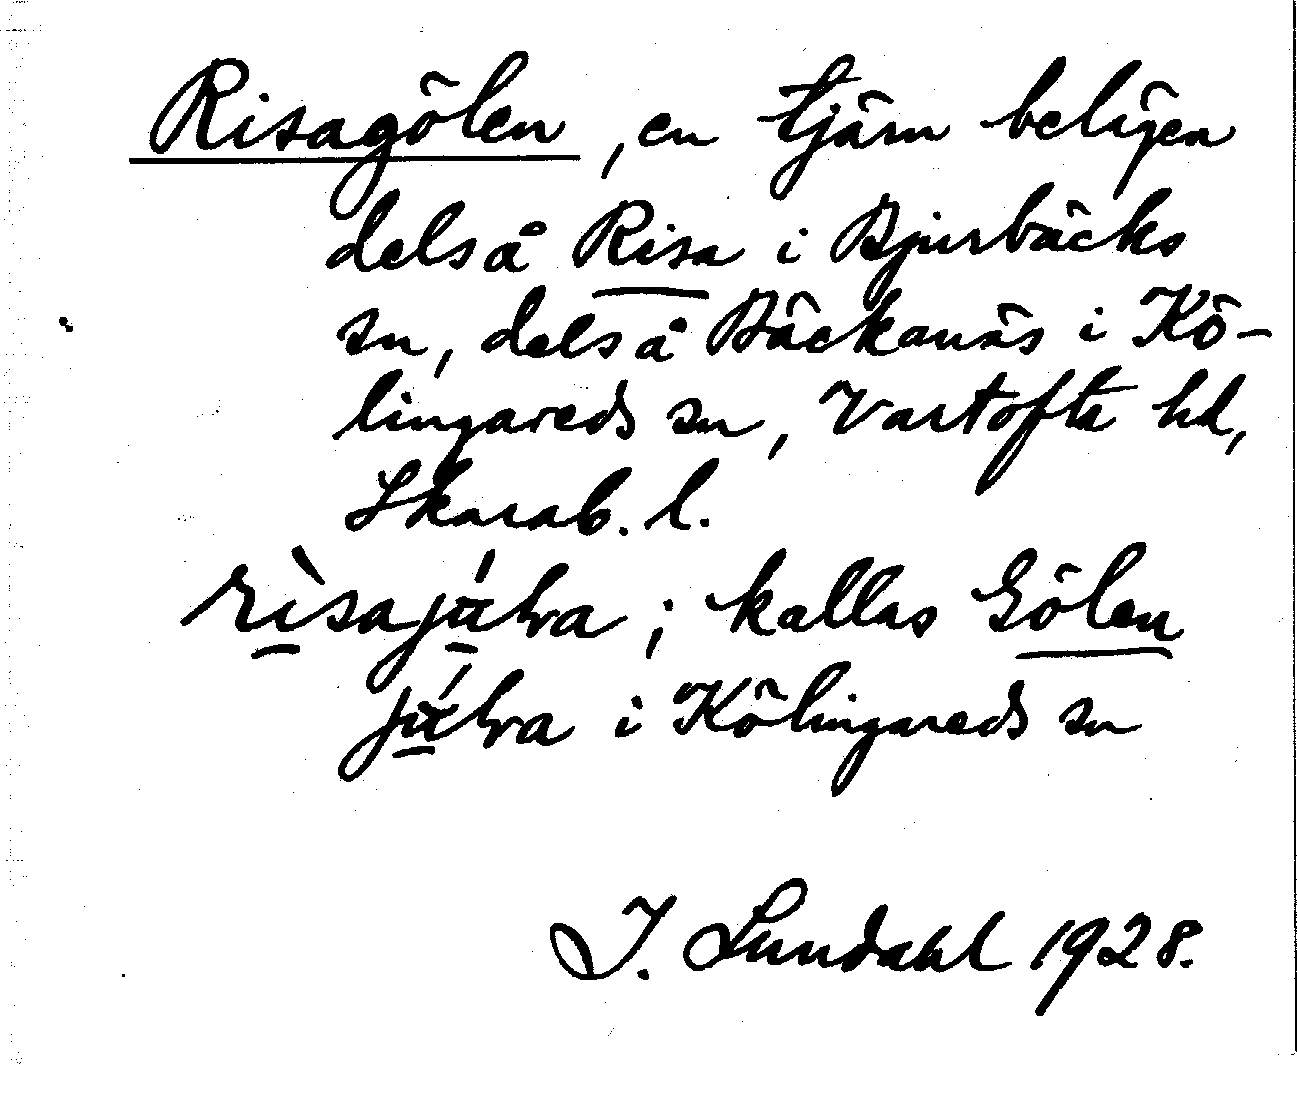 Risagölen, en tjärn belägen
dels å Risa i Bjurbäcks
sn, dels å Bäckanäs i Kö-
lingareds sn, Vartofta hd,
Skarab. l.
; kallas Gölen
i Kölingareds sn
I. Lundahl 1928.